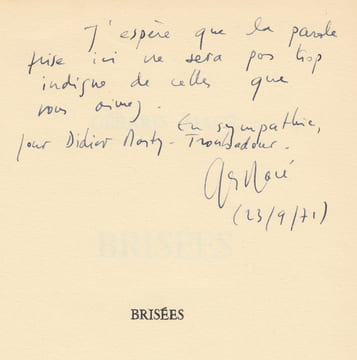 J'espère que la parole
prise ici ne sera pas trop
indigne de celles que
vous aimez.
En sympathie,
pour Didier Troubadour.
(23/9/71)
BRISÉES
BRISÉES